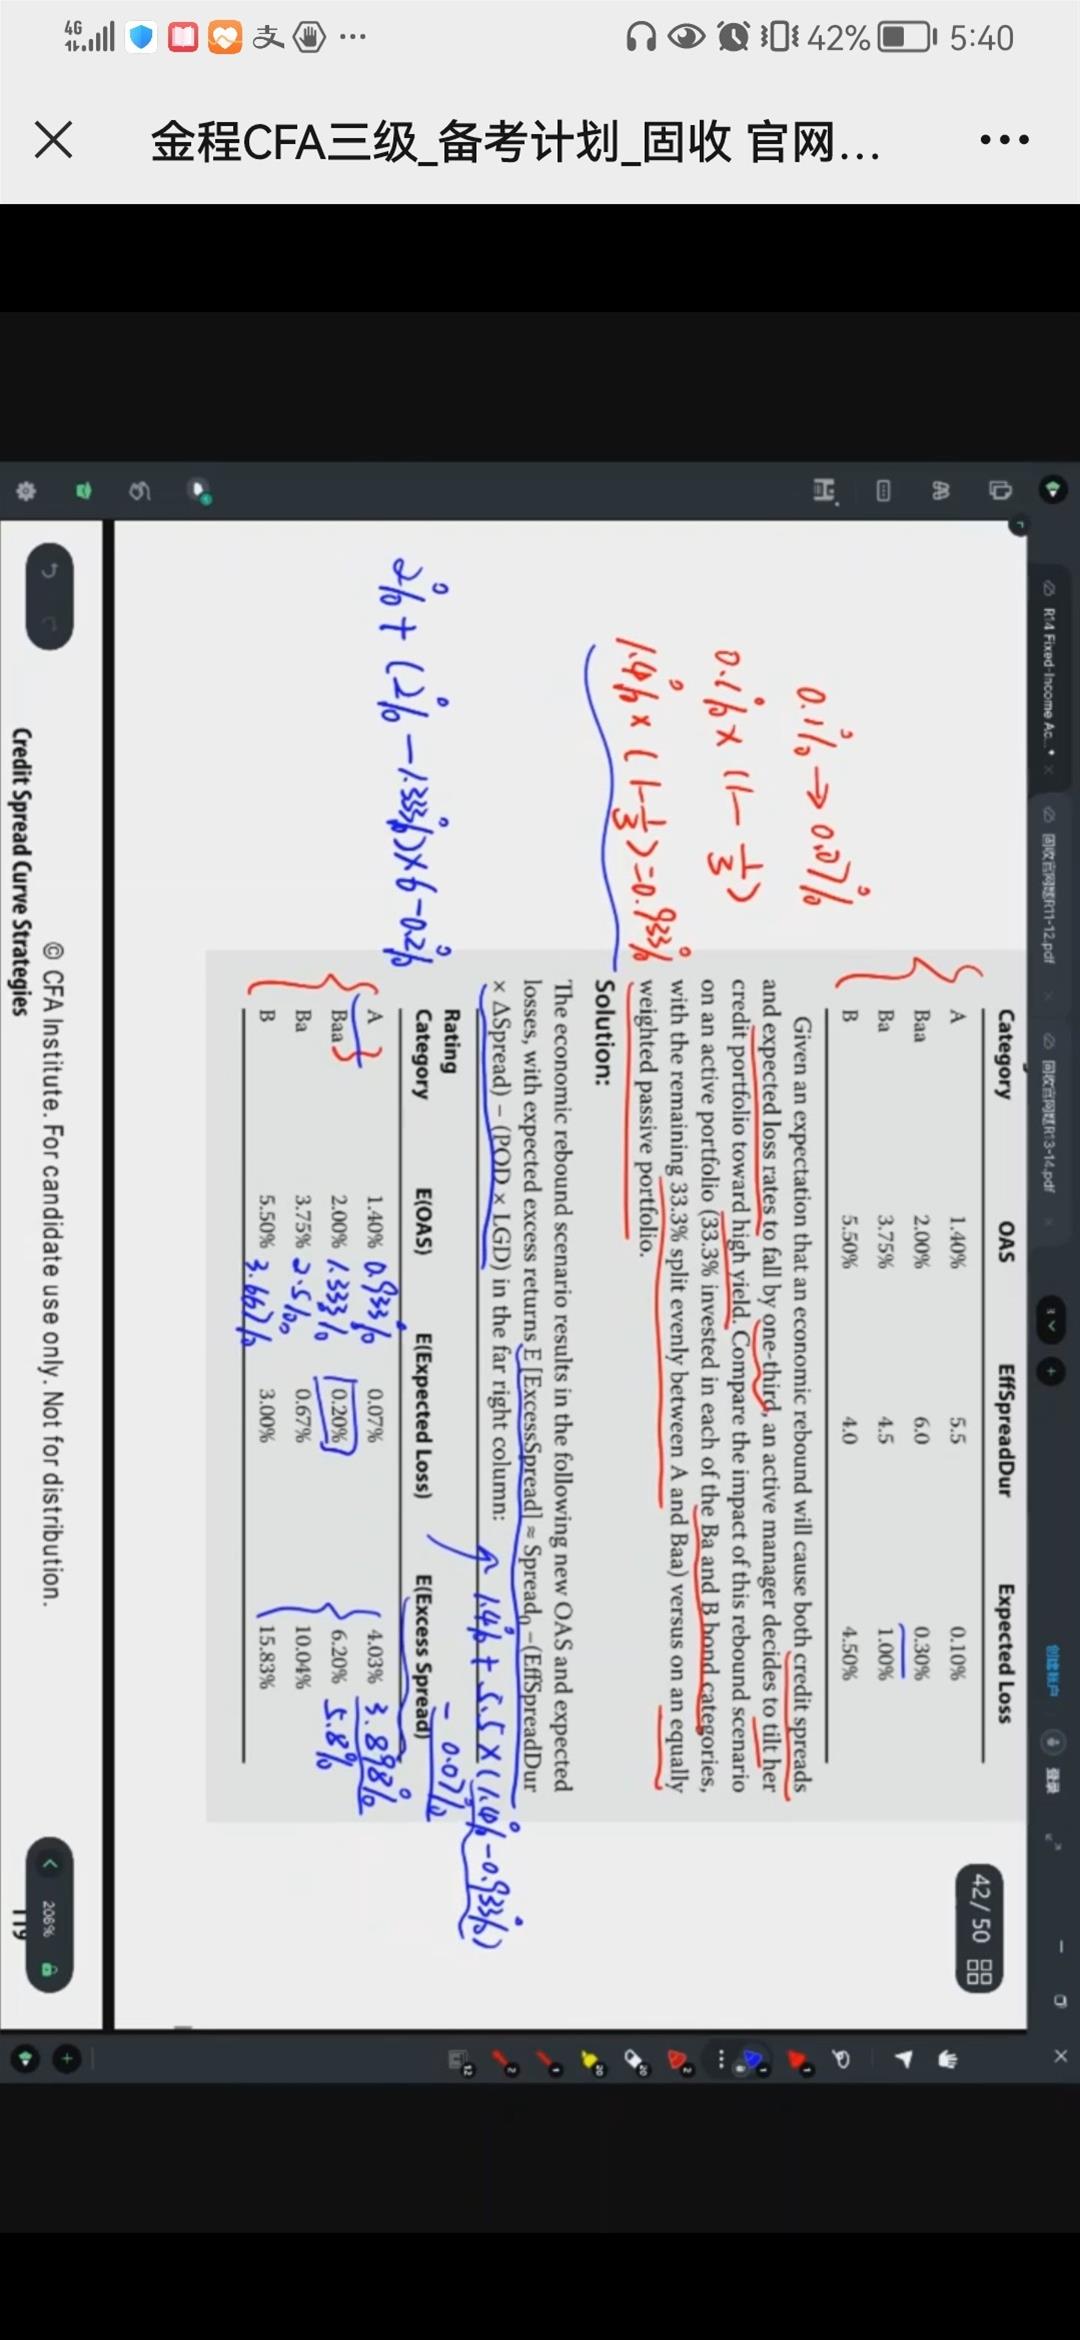 4G
42%
5:40
金程CFA三级_备考计划_固收 官网...
R14 Fixed-Income Ac...
固收官网题R11-12.pdf
固收官网题R13-14.pdf
创建账户
登录
42/50
Category OAS EffSpreadDur Expected Loss
A 1.40% 5.5 0.10%
Baa 2.00% 6.0 0.30%
Ba 3.75% 4.5 1.00%
B 5.50% 4.0 4.50%
Given an expectation that an economic rebound will cause both credit spreads
and expected loss rates to fall by one-third, an active manager decides to tilt her
credit portfolio toward high yield. Compare the impact of this rebound scenario
on an active portfolio (33.3% invested in each of the Ba and B bond categories,
with the remaining 33.3% split evenly between A and Baa) versus on an equally
weighted passive portfolio.
0.1% → 0.07%
0.1% × (1-1/3)
1.4% × (1-1/3)=0.933%
Solution:
The economic rebound scenario results in the following new OAS and expected
losses, with expected excess returns E [ExcessSpread] ≈ Spread₀ −(EffSpreadDur
× ΔSpread) − (POD × LGD) in the far right column:
1.4% + 5.5 × (1.4% - 0.933%)
- 0.07%
2% + (2% - 1.333%) × 6 - 0.2%
Rating
Category E(OAS) E(Expected Loss) E(Excess Spread)
A 1.40% 0.933% 0.07% 4.03% 3.898%
Baa 2.00% 1.333% 0.20% 6.20% 5.8%
Ba 3.75% 2.5% 0.67% 10.04%
B 5.50% 3.667% 3.00% 15.83%
© CFA Institute. For candidate use only. Not for distribution.
Credit Spread Curve Strategies 119
206%